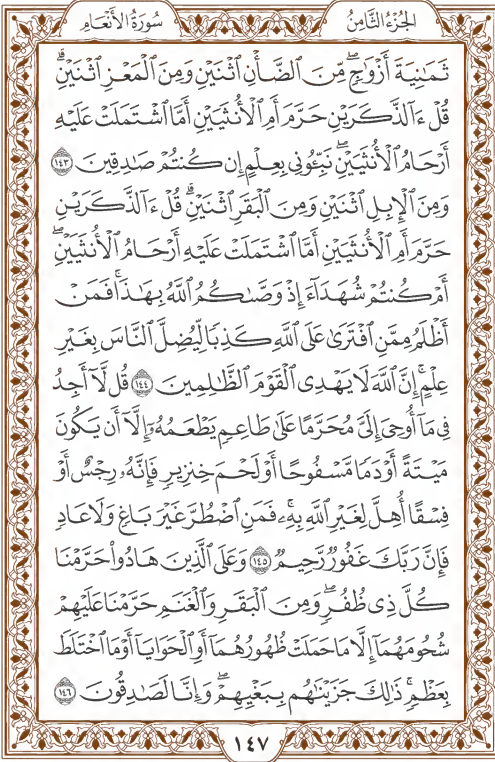 سُورَةُ الأَنْعَامِ الجُزْءُ الثَّامِنُ
ثَمَٰنِيَةَ أَزْوَٰجٖۖ مِّنَ ٱلضَّأۡنِ ٱثۡنَيۡنِ وَمِنَ ٱلۡمَعۡزِ ٱثۡنَيۡنِۗ
قُلۡ ءَآلذَّكَرَيۡنِ حَرَّمَ أَمِ ٱلۡأُنثَيَيۡنِ أَمَّا ٱشۡتَمَلَتۡ عَلَيۡهِ
أَرۡحَامُ ٱلۡأُنثَيَيۡنِۖ نَبِّـُٔونِي بِعِلۡمٍ إِن كُنتُمۡ صَٰدِقِينَ ١٤٣
وَمِنَ ٱلۡإِبِلِ ٱثۡنَيۡنِ وَمِنَ ٱلۡبَقَرِ ٱثۡنَيۡنِۗ قُلۡ ءَآلذَّكَرَيۡنِ
حَرَّمَ أَمِ ٱلۡأُنثَيَيۡنِ أَمَّا ٱشۡتَمَلَتۡ عَلَيۡهِ أَرۡحَامُ ٱلۡأُنثَيَيۡنِۖ
أَمۡ كُنتُمۡ شُهَدَآءَ إِذۡ وَصَّىٰكُمُ ٱللَّهُ بِهَٰذَاۚ فَمَنۡ
أَظۡلَمُ مِمَّنِ ٱفۡتَرَىٰ عَلَى ٱللَّهِ كَذِبٗا لِّيُضِلَّ ٱلنَّاسَ بِغَيۡرِ
عِلۡمٍۚ إِنَّ ٱللَّهَ لَا يَهۡدِي ٱلۡقَوۡمَ ٱلظَّٰلِمِينَ ١٤٤ قُل لَّآ أَجِدُ
فِي مَآ أُوحِيَ إِلَيَّ مُحَرَّمًا عَلَىٰ طَاعِمٖ يَطۡعَمُهُۥٓ إِلَّآ أَن يَكُونَ
مَيۡتَةً أَوۡ دَمٗا مَّسۡفُوحًا أَوۡ لَحۡمَ خِنزِيرٖ فَإِنَّهُۥ رِجۡسٌ أَوۡ
فِسۡقًا أُهِلَّ لِغَيۡرِ ٱللَّهِ بِهِۦۚ فَمَنِ ٱضۡطُرَّ غَيۡرَ بَاغٖ وَلَا عَادٖ
فَإِنَّ رَبَّكَ غَفُورٞ رَّحِيمٞ ١٤٥ وَعَلَى ٱلَّذِينَ هَادُواْ حَرَّمۡنَا
كُلَّ ذِي ظُفُرٖۖ وَمِنَ ٱلۡبَقَرِ وَٱلۡغَنَمِ حَرَّمۡنَا عَلَيۡهِمۡ
شُحُومَهُمَآ إِلَّا مَا حَمَلَتۡ ظُهُورُهُمَآ أَوِ ٱلۡحَوَايَآ أَوۡ مَا ٱخۡتَلَطَ
بِعَظۡمٖۚ ذَٰلِكَ جَزَيۡنَٰهُم بِبَغۡيِهِمۡۖ وَإِنَّا لَصَٰدِقُونَ ١٤٦
١٤٧